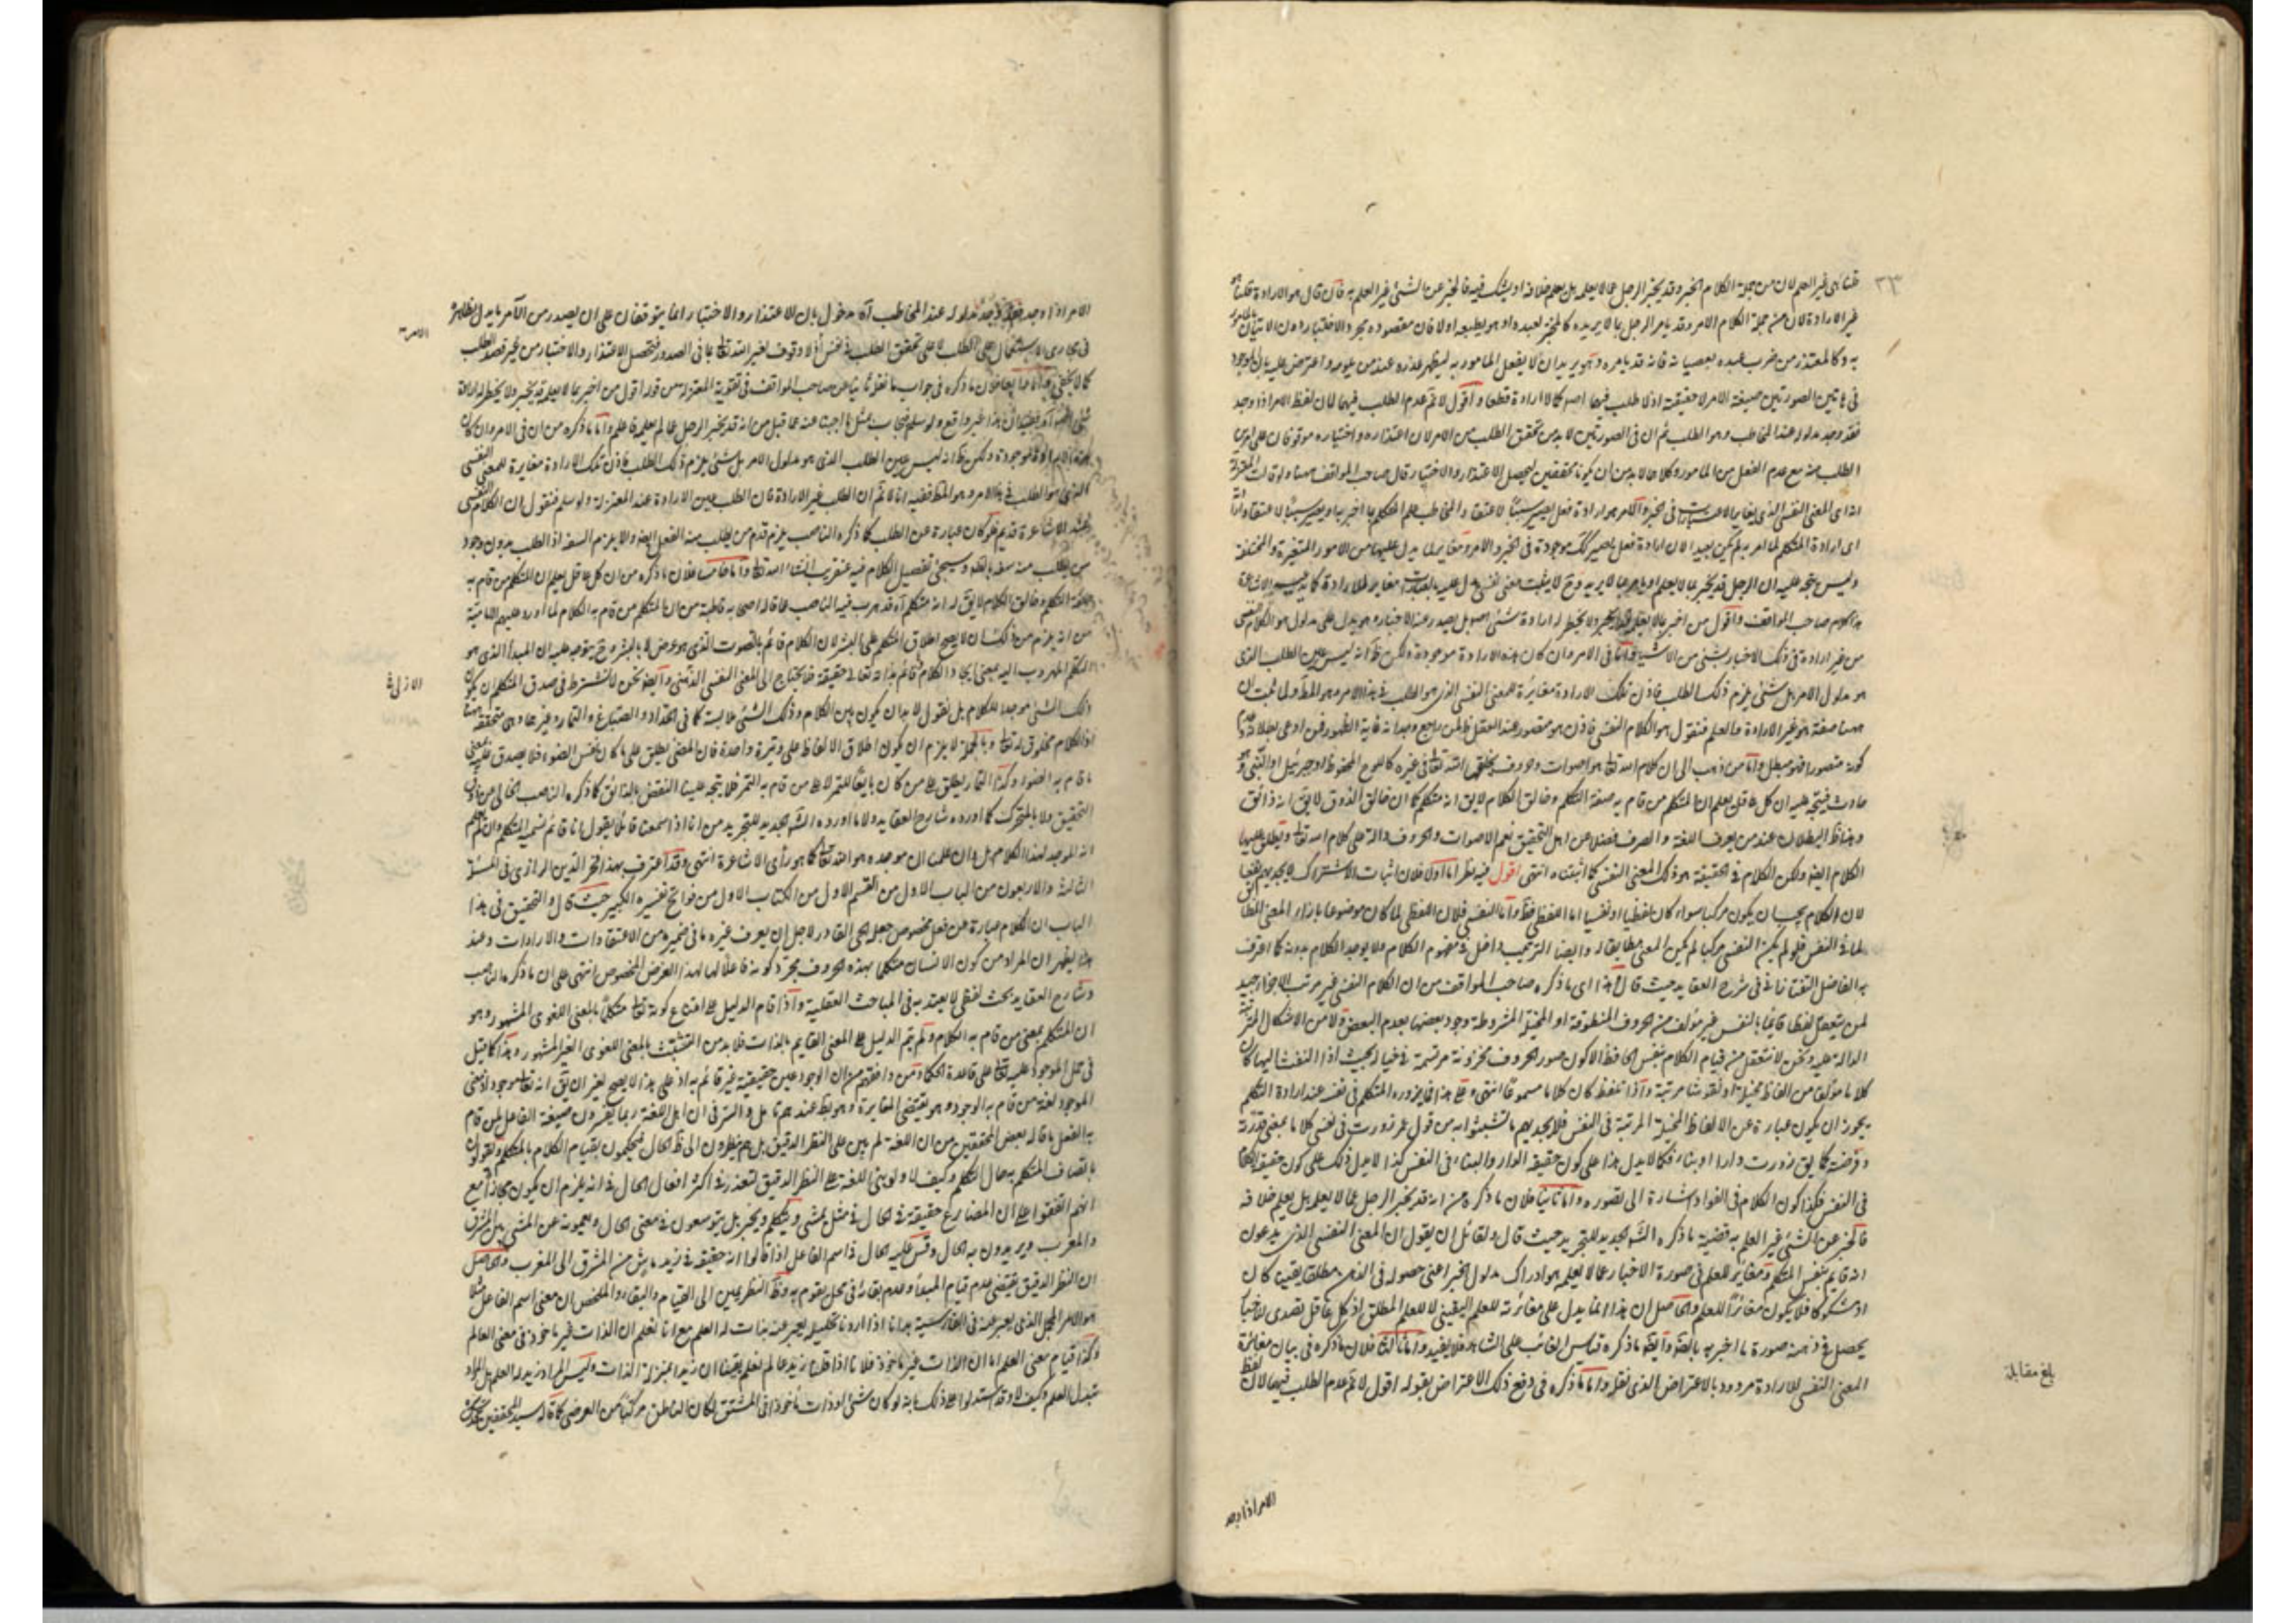 قلنا هى غير العلم لان من جملة الكلام الخبر وقد يخبر الرجل عما لا يعلمه بل يعلم خلافه او يشك فيه فالخبر عن الشئ غير العلم به فان قال هو الارادة قلنا هو
غير الارادة لان من جملة الكلام الامر وقد يامر الرجل بما لا يريده كالمختبر لعبده او هو يطيعه اولا فان مقصوده مجرد الاختبار دون الاتيان بالمأمور
به وكالمعتذر من ضرب عبده بعصيانه فانه قد يامره وهو يريد ان لا يفعل المامور به ليظهر عذره عند من يلومه واعترض عليه بان الموجود
فى هاتين الصورتين صيغة الامر لا حقيقته اذ لا طلب فيهما اصلا كما لا ارادة قطعا واقول لا نم عدم الطلب فيهما لان لفظ الامر اذا وجد
فقد وجد مدلوله عند المخاطب وهو الطلب ثم ان فى الصورتين لا بد من تحقق الطلب من الامر لان اعتذاره واختباره موقوفان على امرين
الطلب منه مع عدم الفعل من المامور وكلاهما لا بد من ان يكونا محققين ليحصل الاعتذار والاختبار قال صاحب المواقف هنا ولو قالت المعتزلة
انه اى المعنى النفسى الذى يغاير العبارات فى الخبر والامر هو ارادة فعل يصير سببا لاعتقاد المخاطب علم المتكلم بما اخبر به او يصير سببا لاعتقاده ارادته
اى ارادة المتكلم لما امر به لم يكن بعيدا لان ارادة فعل يصير كك موجودة فى الخبر والامر ومغايرة لما يدل عليهما من الامور المتغيرة والمختلفة
وليس يتجه عليه ان الرجل قد يخبر بما لا يعلم او يامر بما لا يريد وح لا يثبت معنى نفسى يدل عليه بالعبارات مغاير للارادة كما يدعيه الاشاعرة
هذا كلام صاحب المواقف واقول من اخبر بما لا يعلمه قد يخبر ولا يخطر له ارادة شئ اصلا بل يصدر عنه الاخبار وهو يدل على مدلول هو الكلام النفسى
من غير ارادة فى ذلك الاخبار بشئ من الاشياء واما فى الامر وان كان هذه الارادة موجودة ولكن ظ انه ليس عين الطلب الذى
هو مدلول الامر بل شئ يلزم ذلك الطلب فاذن تلك الارادة مغايرة للمعنى النفسى الذى هو الطلب فى هذا الامر وهو المط ولما ثبت ان
ههنا صفة هو غير الارادة والعلم فنقول هو الكلام النفسى فاذن هو متصور عند العقل
كونه متصورا فهو مبطل واما من ذهب الى ان كلام الله تعا هو اصوات وحروف يخلقها الله تعا فى غيره كاللوح المحفوظ او جبرئيل او النبى وهو
حادث فيتجه عليه ان كل عاقل يعلم ان المتكلم من قام به صفة التكلم وخالق الكلام لا يق انه متكلم كما ان خالق الذوق لا يق انه ذائق
وهذا ظ البطلان عند من يعرف اللغة والصرف فضلا عن اهل التحقيق نعم الاصوات والحروف دالة على كلام الله تعا ويطلق عليها
الكلام ايضا ولكن الكلام فى الحقيقة هو ذلك المعنى النفسى كما اثبتناه انتهى اقول فيه نظر اما اولا فلان اثبات الاشتراك لا يجديهم نفعا
لان الكلام يجب ان يكون مركبا سواء كان لفظيا او نفسيا اما اللفظى فظ واما النفسى فلان اللفظى لما كان موضوعا بازاء المعنى المطابق
لما فى النفس فلو لم يكن النفسى مركبا لم يكن المعنى مطابقا له وايضا الترتيب داخل فى مفهوم الكلام ولا يوجد الكلام بدونه كما اعترف
به الفاضل التفتازانى فى شرح العقايد حيث قال هذا اى ما ذكره صاحب المواقف من ان الكلام النفسى غير مرتب الاجزاء جيد
لمن يتعقل لفظا قائما بالنفس غير مؤلف من الحروف المنطوقة او المخيلة المشروطة وجود بعضها بعدم البعض ولا من الاشكال المترتبة
الدالة عليه ونحن لا نتعقل من قيام الكلام بنفس الحافظ الا كون صور الحروف مخزونة مرتسمة فى خياله بحيث اذا التفت اليها كان
كلاما مؤلفا من الفاظ مخيلة او نقوش مرتبة واذا تلفظ كان كلاما مسموعا انتهى وعلى هذا فما يزوره المتكلم فى نفسه عند ارادة التكلم
يجوز ان يكون عبارة عن الالفاظ المخيلة المرتبة فى النفس فلا يجديهم ما تشبثوا به من قول عمر زورت فى نفسى كلاما بمعنى قدرته
وفرضته كما يق زورت دارا او بناء فكما لا يدل هذا على كون حقيقة الدار والبناء فى النفس كذا لا يدل ذلك على كون حقيقة الكلام
فى النفس فكذا كون الكلام فى الفواد اشارة الى تصوره واما ثانيا فلان ما ذكره من انه قد يخبر الرجل عما لا يعلمه بل يعلم خلافه
فالخبر عن الشئ غير العلم به قضية ما ذكره الش الجديد للتجريد حيث قال ولقائل ان يقول ان المعنى النفسى الذى يدعون
انه قايم بنفس المتكلم ومغاير للعلم فى صورة الاخبار عما لا يعلمه هو ادراك مدلول الخبر اعنى حصوله فى الذهن مطلقا يقينيا كان
او مشكوكا فلا يكون مغايرا للعلم والحاصل ان هذا انما يدل على مغائرته للعلم اليقينى لا للعلم المطلق اذ كل عاقل تصدى للاخبار
يحصل فى ذهنه صورة ما اخبر به بالضرورة وايضا ما ذكره قياس الغائب على الشاهد فلا يفيد واما ثالثا فلان ما ذكره فى بيان مغائرة
المعنى النفسى للارادة مردود بالاعتراض الذى نقله واما ما ذكره فى دفع ذلك الاعتراض بقوله اقول لا نم عدم الطلب فيهما لان لفظ
بلغ مقابلة
الامر اذا وجد
الامر اذا وجد فقد وجد مدلوله عند المخاطب آه مدخول بان الاعتذار والاختبار انما يتوقفان على ان يصدر من الآمر ما يدل بظاهره
فى مجارى الاستعمال على الطلب لا على تحقق الطلب فى نفس
كما لا يخفى واما رابعا فلان ما ذكره فى جواب ما نقل ثانيا عن صاحب المواقف فى تقوية المعتزلة من قوله اقول من اخبر بما لا يعلمه قد يخبر ولا يخطر له ارادة
موجودة ولكن ظ انه ليس عين الطلب الذى هو مدلول الامر بل شئ يلزم ذلك الطلب فاذن تلك الارادة مغايرة للمعنى النفسى
الذى هو الطلب فى هذا الامر وهو المط ففيه انا لا نم ان الطلب غير الارادة فان الطلب عين الارادة عند المعتزلة ولو سلم فنقول ان الكلام النفسى
عند الاشاعرة قديم فلو كان عبارة عن الطلب كما ذكره الناصب يلزم قدم من يطلب منه الفعل ايضا والا يلزم السفه اذ الطلب بدون وجود
من يطلب منه سفه بالاتفاق وسيجئ تفصيل الكلام فيه عنقريب انشاء الله تعا واما خامسا فلان ما ذكره من ان كل عاقل يعلم ان المتكلم من قام به
صفة التكلم وخالق الكلام لا يق له انه متكلم آه قد هرب فيه الناصب عما قاله اصحابه قاطبة من ان المتكلم من قام به الكلام لما اورد عليهم الامامية
من انه يلزم من ذلك ان لا يصح اطلاق المتكلم على البشر لان الكلام قائم بالصوت الذى هو عرض لا بالبشر وح يتوجه عليه ان المبدأ الذى هو
التكلم المهروب اليه بمعنى ايجاد الكلام قائم بذاته تعالى حقيقة فلا يحتاج الى المعنى النفسى الذهنى وايضا نحن لا نشترط فى صدق المتكلم ان يكون
ذلك الشئ موجدا للكلام بل نقول لا بد ان يكون بين الكلام وذلك الشئ ملابسة كما فى الحداد والصباغ والتمار وغيرها وهى متحققة ههنا
اذ الكلام مخلوق له تعا وبالجملة لا يلزم ان يكون اطلاق الالفاظ على وتيرة واحدة فان المضئ يطلق على ما كان نفس الضوء فلا يصدق عليه معنى
ما قام به الضوء وكذا التمار يطلق على من كان بايعا للتمر لا على من قام به التمر فلا يتجه علينا النقض بالذائق كما ذكره الناصب الخالى من ذوق
التحقيق ولا بالمتحرك كما اورده شارح العقايد ولا ما اورده الش الجديد للتجريد من انا اذا سمعنا قائلا يقول انا قائم نسميه المتكلم وان لم نعلم
انه الموجد لهذا الكلام بل وان علمنا ان موجده هو الله تعا كما هو رأى الاشاعرة انتهى وقد اعترف بهذا فخر الدين الرازى فى المسئلة
الثالثة والاربعون من الباب الاول من القسم الاول من الكتاب الاول من فواتح تفسيره الكبير حيث قال والتحقيق فى هذا
الباب ان الكلام عبارة عن فعل مخصوص جعله الحى القادر لاجل ان يعرف غيره ما فى ضميره من الاعتقادات والارادات وعند
هذا يظهر ان المراد من كون الانسان متكلما بهذه الحروف مجرد كونه فاعلا لها لهذا الغرض المخصوص انتهى على ان ما ذكره الناصب
وشارح العقايد بحث لفظى لا يعتد به فى المباحث العقلية واذا قام الدليل على امتناع كونه تعا متكلما بالمعنى اللغوى المشهور وهو
ان المتكلم بمعنى من قام به الكلام ولم يتم الدليل على المعنى القايم بالذات فلا بد من التشبث بالمعنى اللغوى الغير المشهور وهذا كما قيل
فى حمل الموجود عليه تعا على قاعدة الحكماء ومن وافقهم من ان الوجود عين حقيقته غير قائم به اذ على هذا لا يصح لغة ان يق انه تعا موجود اذ معنى
الموجود لغة من قام به الوجود وهو يقتضى المغايرة وهو بط عندهم تأمل والسر فى ان اهل اللغة ربما يفسرون صيغة الفاعل بمن قام
به الفعل ما قاله بعض المحققين من ان اللغة لم يبن على النظر الدقيق بل هم ينظرون الى ظ الحال فيحكمون بقيام الكلام بالمتكلم ويقولون
باتصاف المتكلم به حال التكلم وكيف لا ولو بنى اللغة على النظر الدقيق لتعذر فى اكثر افعال الحال فى انه يلزم ان يكون مجازا مع
انهم اتفقوا على ان المضارع حقيقة فى الحال فى مثل يمشى ويتكلم ويخبر بل يتوسعون فى معنى الحال ويعمونه عن المشى بين المشرق
والمغرب ويريدون به الحال وقس عليه الحال فى اسم الفاعل اذا قالوا انه حقيقة فى زيد ماش من المشرق الى المغرب والحاصل
ان النظر الدقيق يقتضى عدم قيام المبدأ وعدم بقائه فى محل يقوم به وظ النظر يمين الى القيام والبقاء والملخص ان معنى اسم الفاعل مثلا
هو الامر المجمل الذى يعبر عنه فى الفارسية بدانا اذا اردنا تحليله يعبر عنه بذات له العلم مع انا نعلم ان الذات غير ماخوذ فى معنى العالم
وكذا قيام معنى العلم اما ان الذات غير ماخوذ فلانا اذا قلنا زيد عالم نعلم يقينا ان زيدا بمنزلة الذات وليس المراد زيد له العلم بل المراد
تبدل العلم وكيف لا وقد استدلوا على ذلك بانه لو كان شئ او ذات ماخوذا فى المشتق لكان الناطق مركبا من العرضى كما قاله سيد المحققين